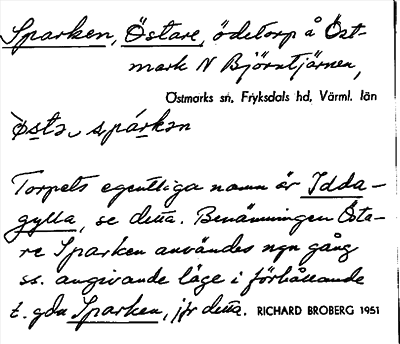 Sparken, Östare, ödetorp å Öst-
mark N Björntjärnen,
Östmarks sn, Fryksdals hd, Värml. län
ɵ̀sta, spárkan
Torpets egentliga namn är Idda-
gylla, se detta. Benämningen Östa-
re Sparken användes ngn gång
ss. angivande läge i förhållande
t. gdn Sparken, jfr detta. RICHARD BROBERG 1951